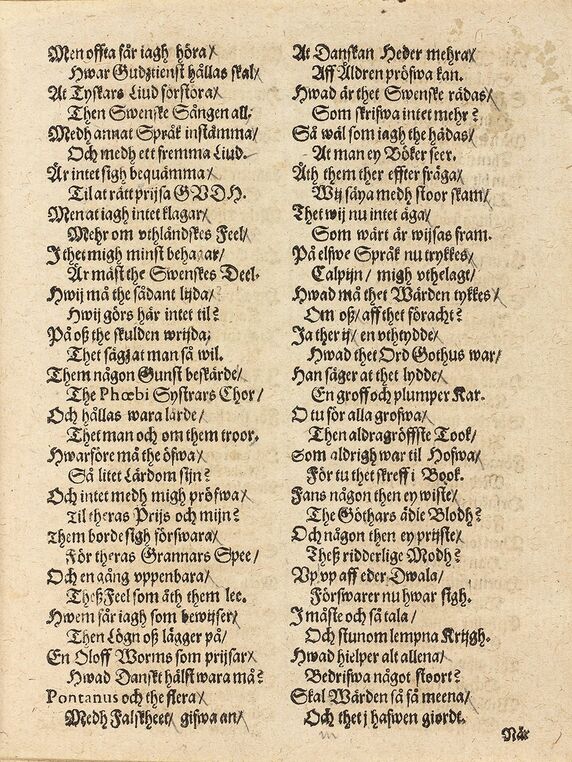 Men offta får iagh höra/
Hwar Gudztienst hållas skal/
At Tyskars Liud förstöra/
Then Swenske Sången all:
Medh annat Språk instämma/
Och medh ett fremma Liud.
Är intet sigh bequämma/
Til at rätt prijsa GUDH.
Men at iagh intet klagar/
Mehr om vthländskes Feel/
I thet migh minst behagar/
Är mäst the Swenskes Deel.
Hwij må the sådant lijda/
Hwij görs här intet til?
På oß the skulden wrijda;
Thet säg at man så wil.
Them någon Gunst beskärde/
The Phœbi Systrars Chor/
Och hållas wara lärde/
Thet man och om them troor.
Hwarföre må the öfwa/
Så litet Lärdom sijn?
Och intet medh migh pröfwa/
Til theras Prijs och mijn?
Them borde sigh förswara/
För theras Grannars Spee/
Och en gång vppenbara/
Theß Feel som äth them lee.
Hwem får iagh som bewijser/
Then Lögn oß lägger på/
En Oloff Worms som prijsar/
Hwad Danskt hälst wara må?
Pontanus och the flera/
Medh Falskheet/ gifwa an/
At Danskan Heder mehra/
Aff Äldren pröfwa kan.
Hwad är thet Swenske rädas/
Som skrifwa intet mehr?
Så wäl som iagh the hädas/
At man ey Böker seer.
Åth them ther effter fråga/
Wij säya medh stoor skam/
Thet wij nu intet äga/
Som wärt är wijsas fram.
På elfwe Språk nu tryckes/
Calpijn/ migh vthelagt/
Hwad må thet Wärden tykkes/
Om oß/ aff thet föracht?
Ja ther ij/ en vthtydde/
Hwad thet Ord Gothus war/
Han säger at thet lydde/
En groff och plumper Kar.
O tu för alla grofwa/
Then aldragröffste Took/
Som aldrigh war til Hofwa/
För tu thet skreff i Book.
Fans någon then ey wiste/
The Göthars ädle Blodh?
Och någon then ey prijste/
Theß ridderlige Modh?
Vp vp aff eder Dwala/
Förswarer nu hwar sigh.
I måste och så tala/
Och stunom lempna Krijgh.
Hwad hielper alt allena/
Bedrifwa något stoort?
Skal Wärden så få meena/
Och thet j hafwen giordt.
När